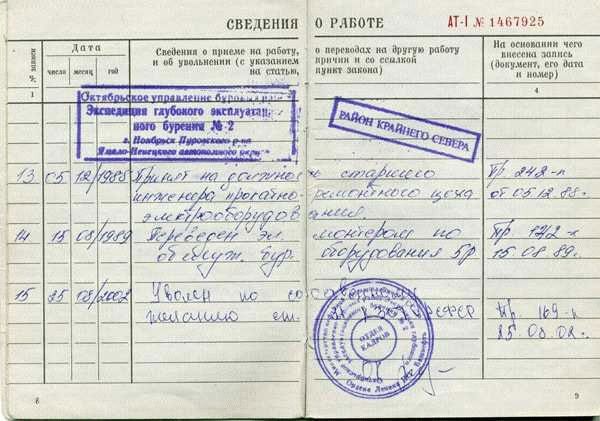 СВЕДЕНИЯ О РАБОТЕ
АТ-I № 1467925
№ записи
Дата
число месяц год
Сведения о приеме на работу, о переводах на другую работу
и об увольнении (с указанием причин и со ссылкой
на статью, пункт закона)
На основании чего
внесена запись
(документ, его дата
и номер)
1
4
Октябрьское управление
Экспедиция глубокого
ного бурения № 2
г. Ноябрьск
Ямало-Ненецкого автономного
РАЙОН КРАЙНЕГО СЕВЕРА
13 05 12/1988 Принят на должность старшего Пр 242-к
инженера ремонтного цеха от 05.12.88.
электрооборудования.
14 15 08/1989 Переведен эл. монтером по Пр
обслуж. бур. оборудования 5р 15.08.89.
15 25 08/2002 Уволен по собственному
желанию ст. Пр. 169-к
25.08.02г.
ОТДЕЛ
КАДРОВ
Ордена Ленина
8
9